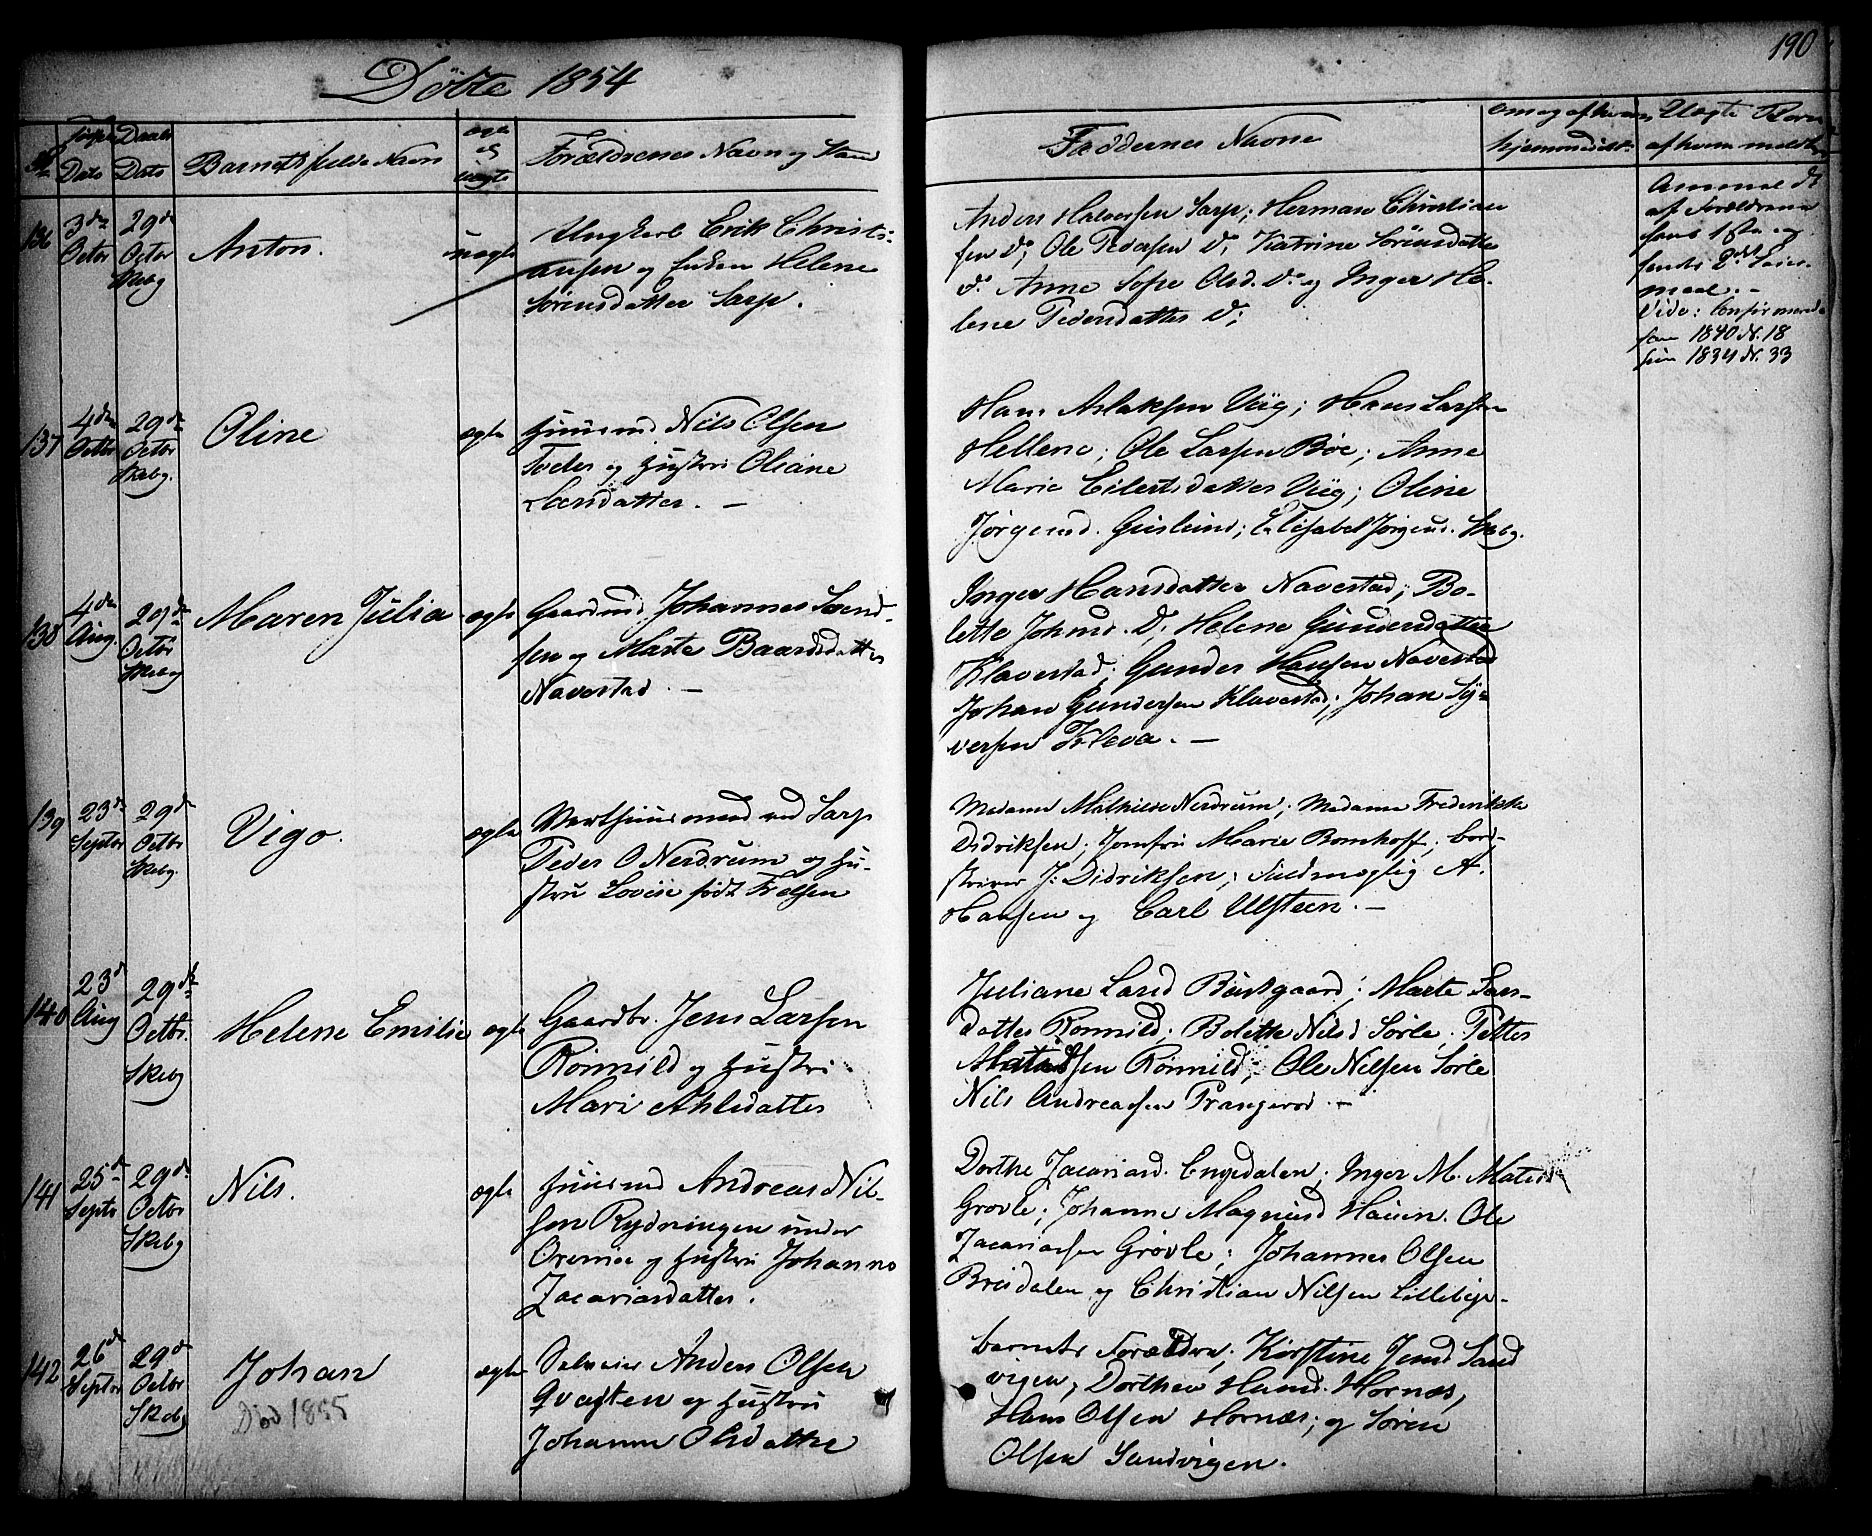 190
Döbte 1854
No
Føds. Dato
Daabs Dato
Barnets fulde Navn
ægte el uægte
Forældrenes Navn og Stand
Faddernes Navne
om og af hvem hjemmedøbt
Uægte Børn af hvem meldt
136
3de Octbr
29de Octbr Skebg
Anton.
uægte
Ungkarl Erik Christi-
ansen og Enken Helene
Sörensdatter Sarp.
Anders Halvorsen Sarp; Herman Christian
sen do; Ole Pedersen do; Katrine Sörensdatter
do. Anne Sofie Olsd. do og Inger He-
lene Pedersdatter do;
Anmeldt
af Forældrene
hans 1ste og
hendes 2det Leier-
maal. -
Vide: Confirmerede
han 1840 N. 18
hun 1834 N. 33
137
4de Octbr
29de Octbr Skebg.
Oline
ægte
Huusmd Nils Olsen
og Hustru Oliane
Larsdatter. -
Hans Aslaksen Viig; Hans Larsen
Hellene; Ole Larsen Böe; Anne
Marie Eilertsdatter Viig; Oline
Jörgensd. Gislund; Elisabet Jörgensd. Skebg.
138
4de Aug.
29de Octbr Skebg
Maren Julia
ægte
Gaardmd Johannes Svend-
sen og Marte Baardsdatter
Navestad. -
Inger Hansdatter Navestad; Bo-
lette Johnsd. do; Helene Gundersdatter
Klavestad; Gunder Hansen Navestad
Johan Gundersen Klavestad; Johan Sy-
versen Kleva. -
139
23de Septbr
29de Octbr Skebg.
Vigo.
ægte
Værthuusmand ved Sarp
Peder O Nerdrum og Hu-
stru Lovise født Frelsen
Madame Mathilde Nerdrum; Madame Frederikke
Didriksen; Jomfru Marie Bomhoff; Cord-
skriver J: Didriksen; Fuldmægtig A.
Hansen og Carl Ulsteen. -
140
23de Aug
29de Octbr. Skebg
Helene Emilie
ægte
Gaardbr. Jens Larsen
Römmild og Hustru
Mari Ahlsdatter
Juliane Larsd Bustgaard; Marte Lars-
datter Römmild; Bolette Nilsd Sörle. Petter
Römmild; Ole Nilsen Sörle
Nils Andreassen Prangerod -
141
25de Septbr
29de Octbr Skebg
Nils.
ægte
Huusmd Andreas Nil-
sen Rydningen under
og Hustru Johanne
Zacariasdatter.
Dorthe Zacariasd. Engedalen; Inger M. Matisd
Grövle; Johanne Magnusd Hauen. Ole
Zacariassen Grövle; Johannes Olsen
Breidalen og Christian Nilsen Lilleby.-
142
26de Septbr
29de Octbr Skebg
Johan
Död 1855
ægte
Selveier Anders Olsen
Qvasten og Hustru
Johanne Olsdatter
Barnets Forældre; Kirstine Jensd Sand
vigen, Dorthea Hansd. Hornæs,
Hans Olsen Hornæs; og Sören
Olsen Sandvigen.